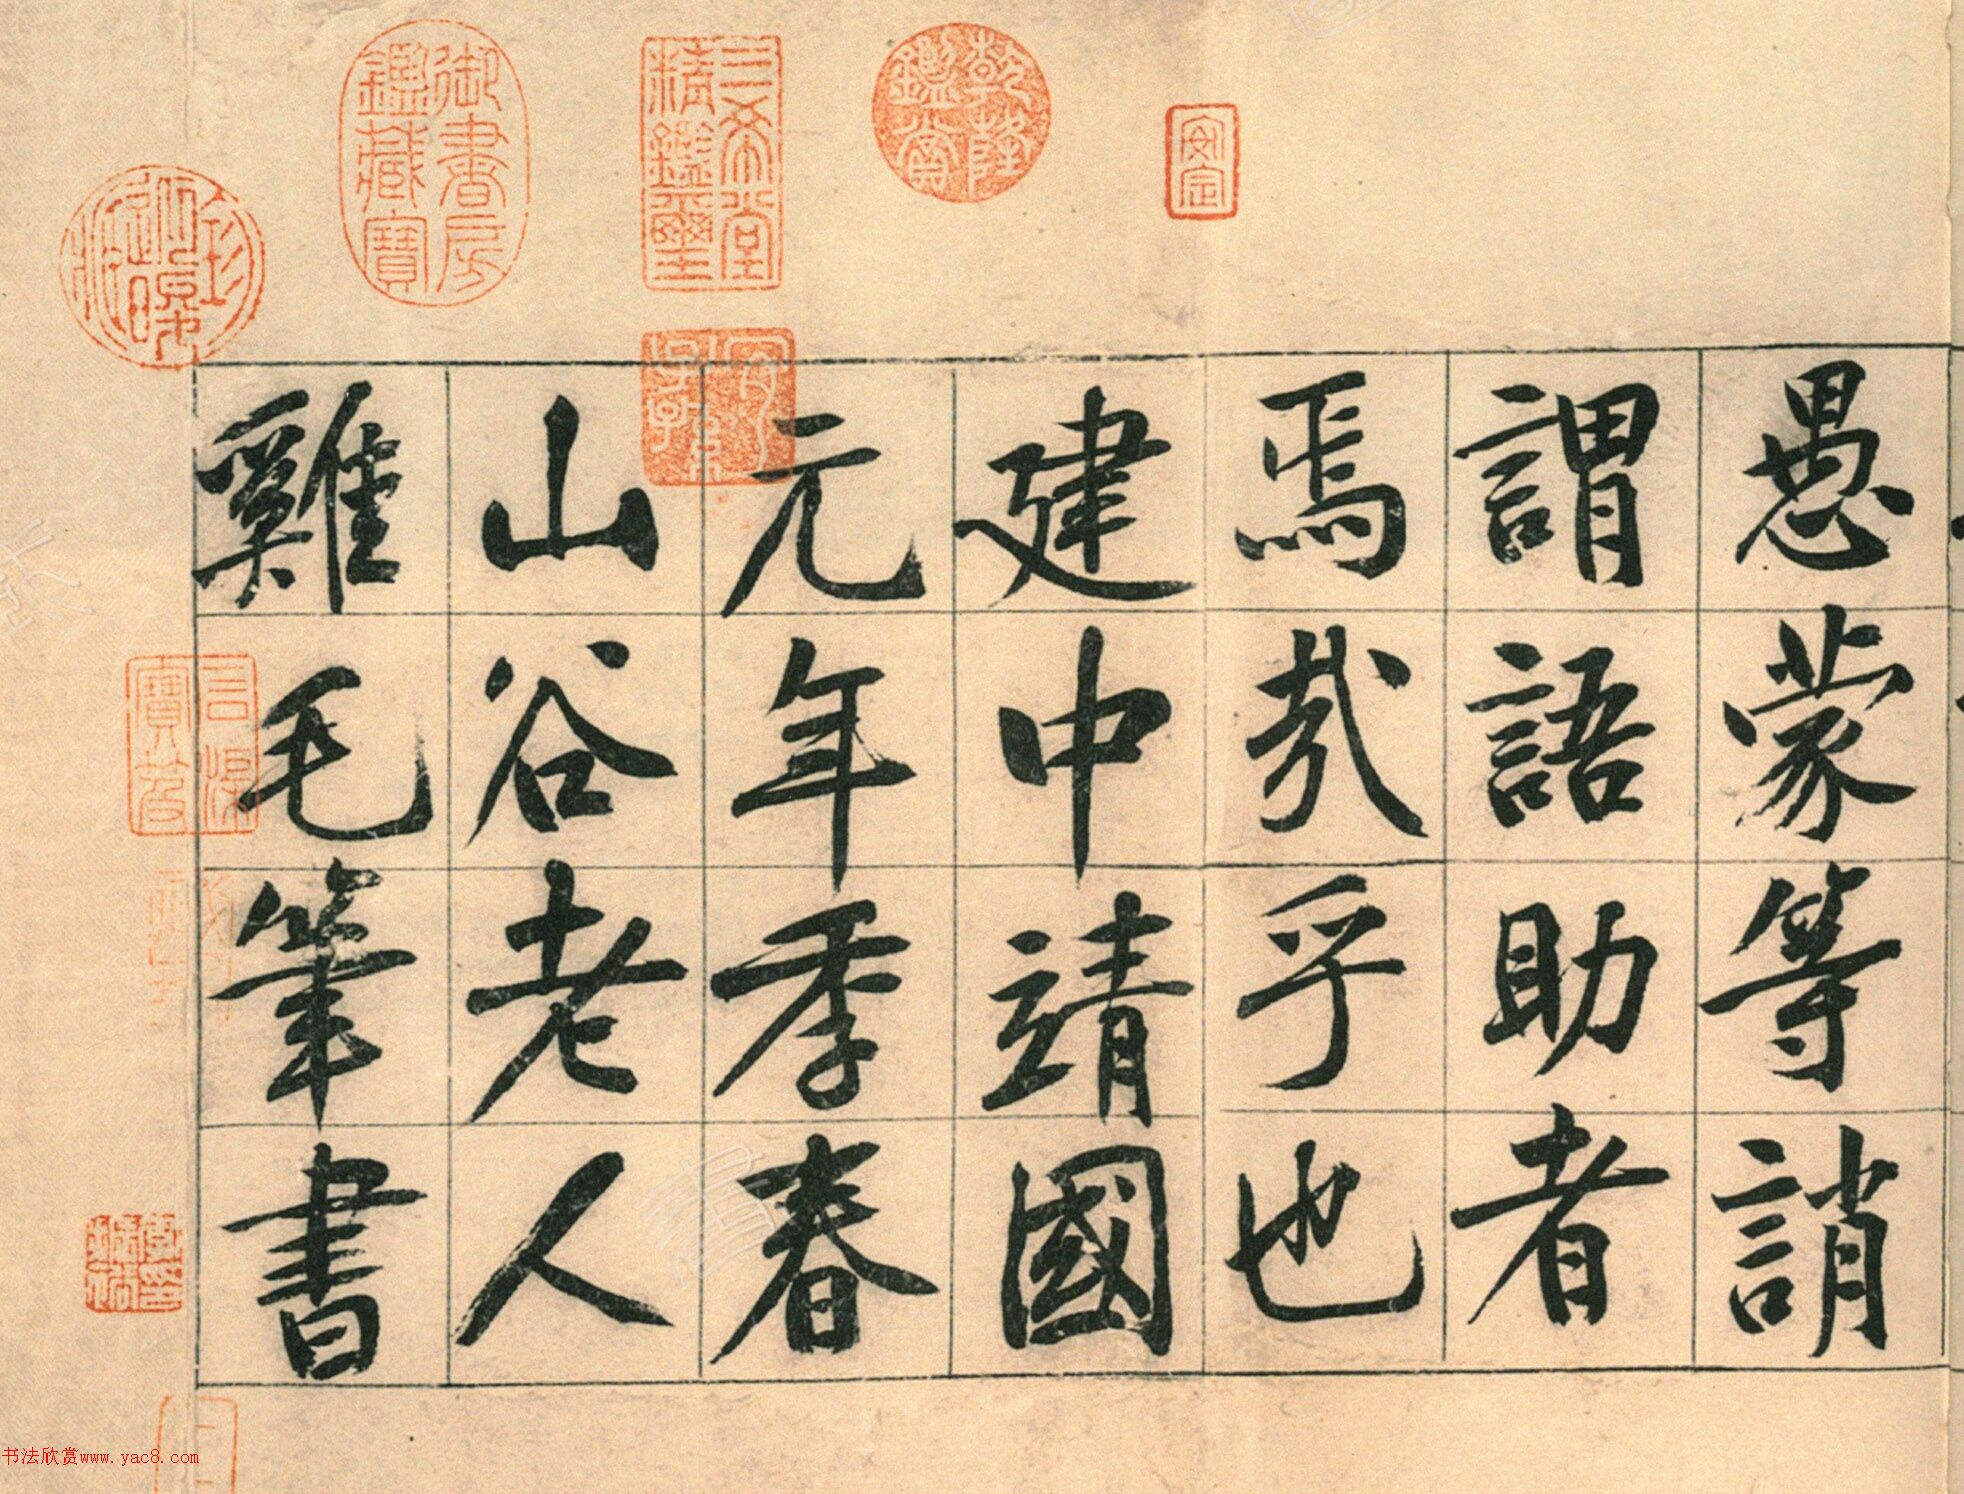 愚蒙等誚
謂語助者
焉哉乎也
建中靖國
元年季春
山谷老人
雞毛筆書
安定
乾隆鑑賞
三希堂精鑑璽
御書房鑑藏寶
书法欣赏www.yac8.com